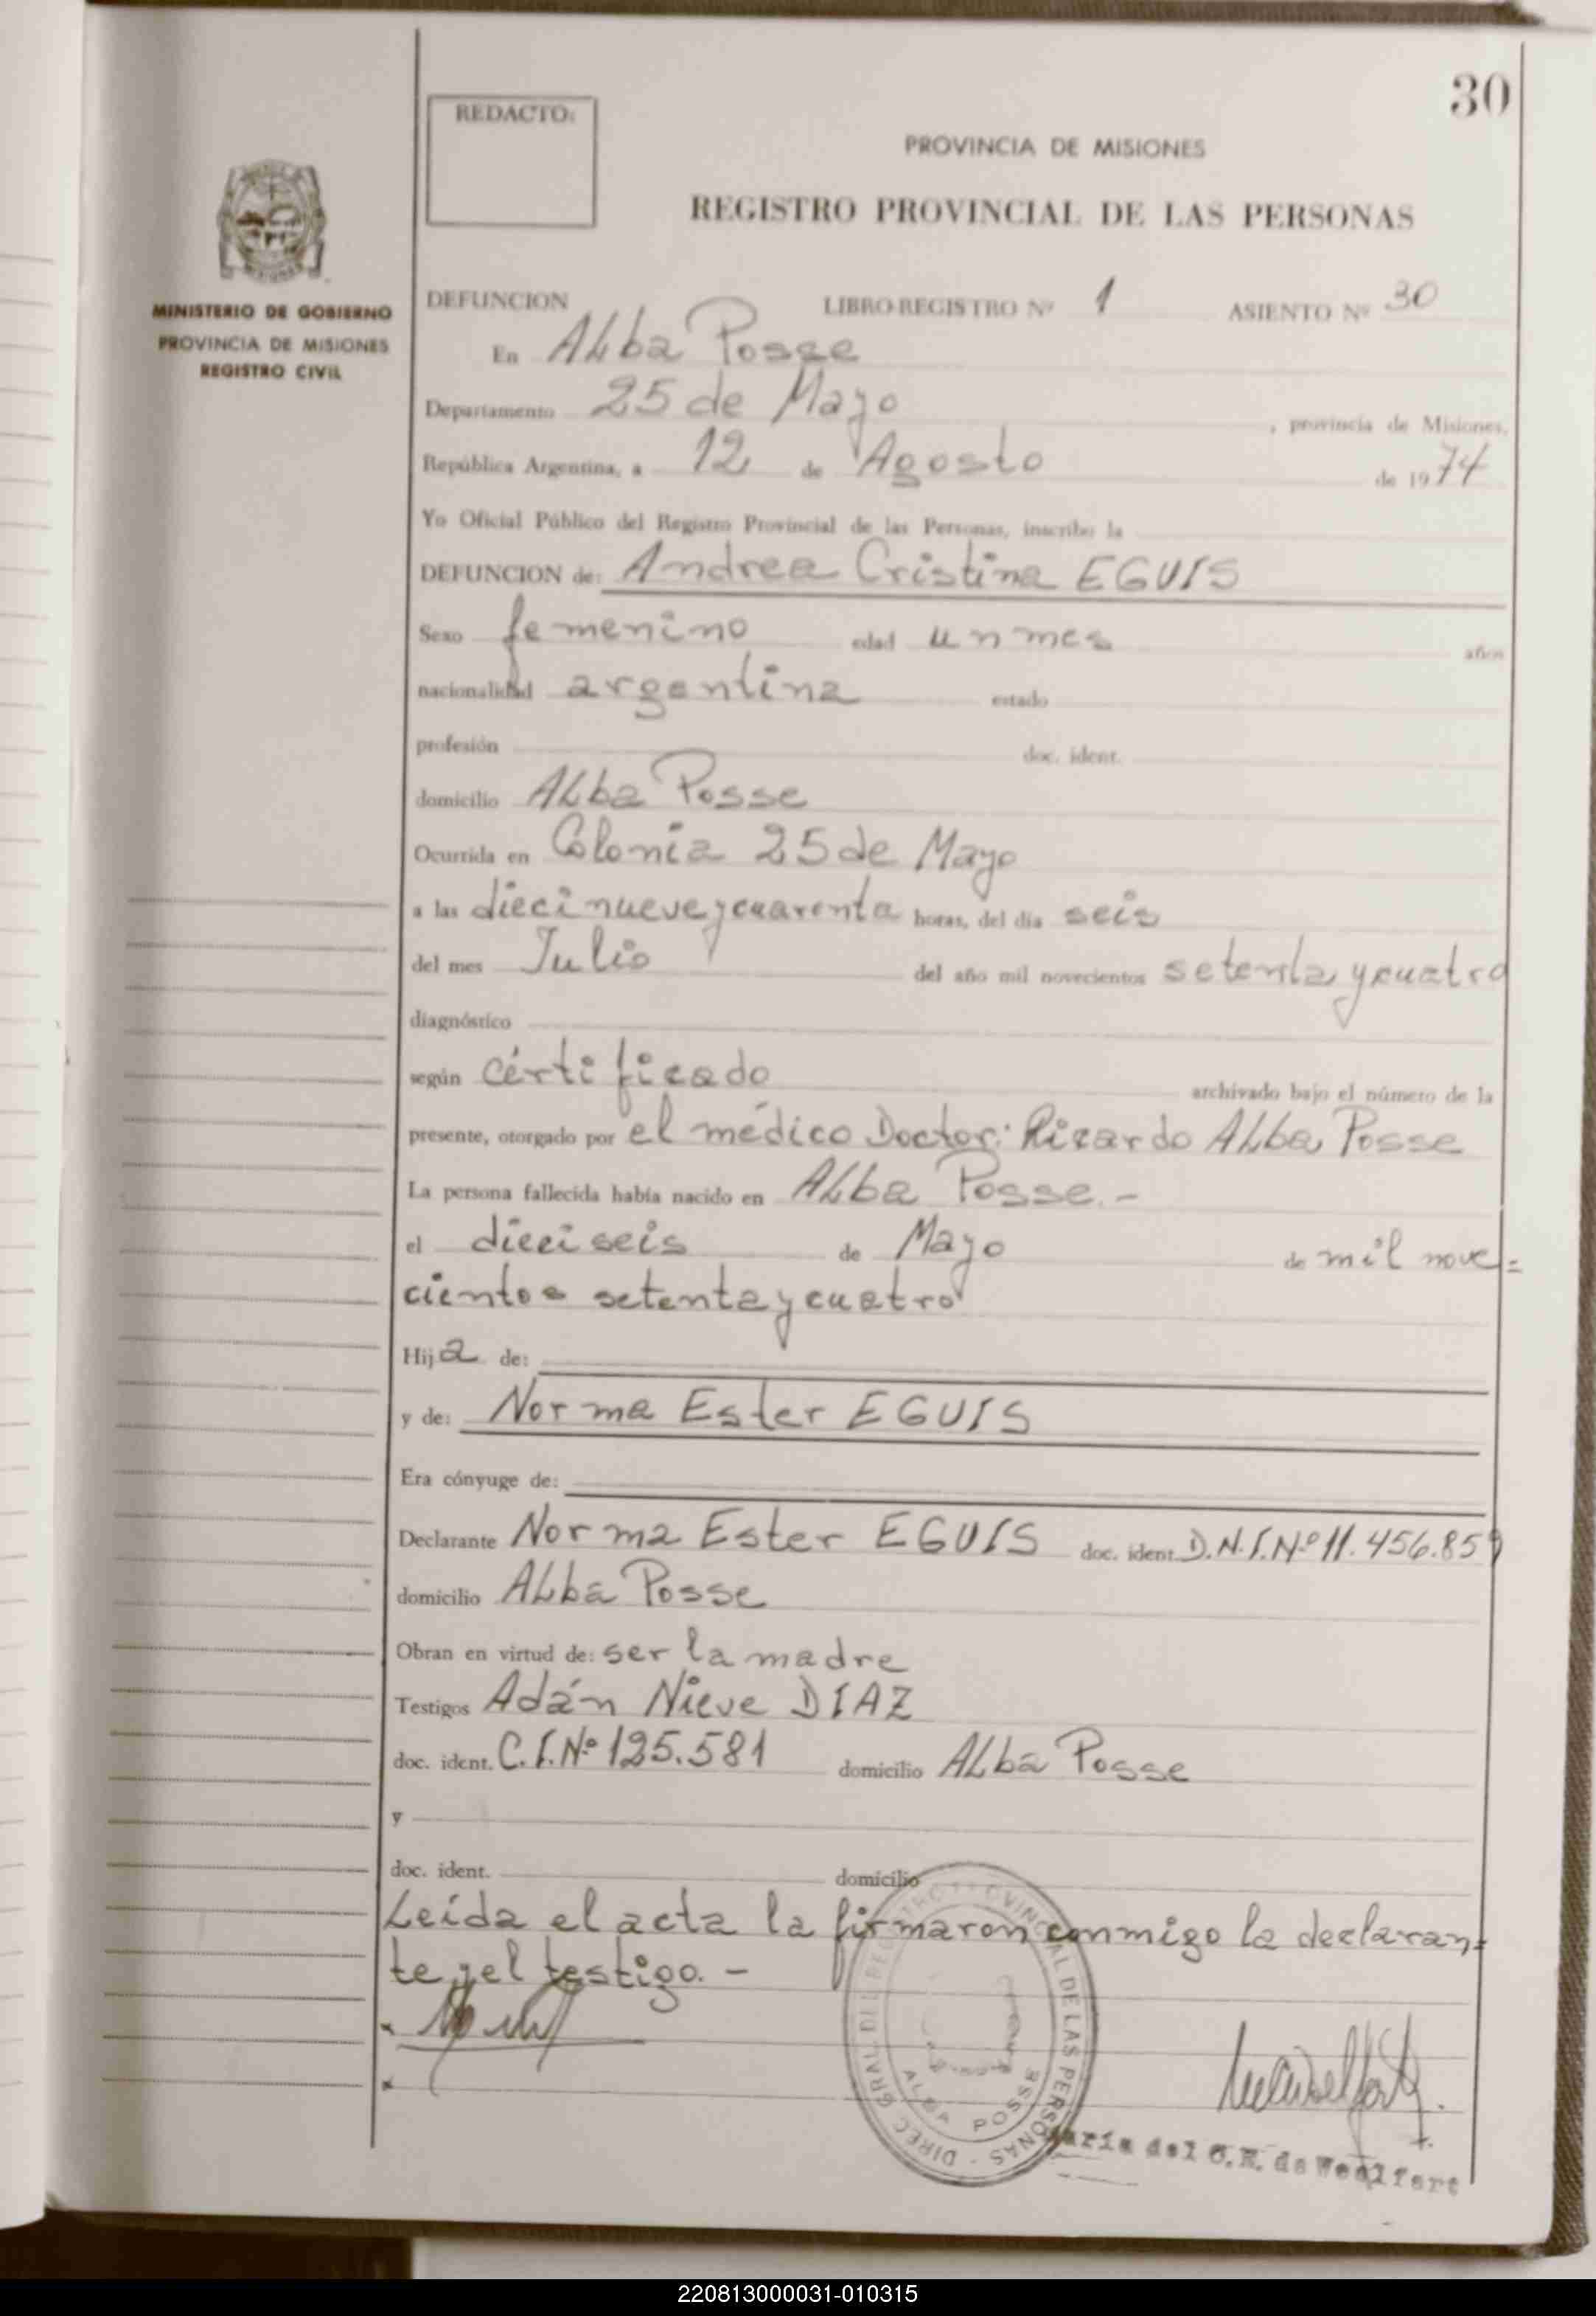 30
REDACTO:
PROVINCIA DE MISIONES
REGISTRO PROVINCIAL DE LAS PERSONAS
MINISTERIO DE GOBIERNO
PROVINCIA DE MISIONES
REGISTRO CIVIL
DEFUNCION LIBRO-REGISTRO Nº 1 ASIENTO Nº 30
En ALba Posse
Departamento 25 de Mayo , provincia de Misiones,
República Argentina, a 12 de Agosto de 1974
Yo Oficial Público del Registro Provincial de las Personas, inscribo la
DEFUNCION de: Andrea Cristina EGUIS
Sexo femenino edad un mes años
nacionalidad argentina estado
profesión doc. ident.
domicilio ALba Posse
Ocurrida en Colonia 25 de Mayo
a las diecinueve y cuarenta horas, del día seis
del mes Julio del año mil novecientos setenta y cuatro
diagnóstico
según cértificado archivado bajo el número de la
presente, otorgado por el médico Doctor: Ricardo ALba Posse
La persona fallecida había nacido en ALba Posse.-
el dieciseis de Mayo de mil nove=
cientos setenta y cuatro
Hija de:
y de: Norma Ester EGUIS
Era cónyuge de:
Declarante Norma Ester EGUIS doc. ident. D.N.I.Nº 11.456.859
domicilio ALba Posse
Obran en virtud de: ser la madre
Testigos Adán Nieve DIAZ
doc. ident. C.I.Nº 125.581 domicilio ALba Posse
y
doc. ident. domicilio
Leída el acta la firmaron conmigo la declaran=
te y el testigo.-
DIREC. GRAL. DEL REGISTRO PROVINCIAL DE LAS PERSONAS
ALBA POSSE
María del C.R. de Woelfert
220813000031-010315